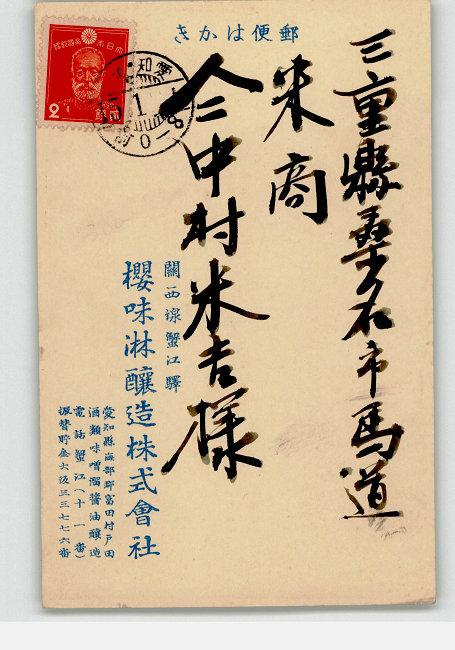 郵便はかき
三重縣桑名市馬道
米商
中村米吉様
關西線蟹江驛
櫻味淋釀造株式會社
愛知縣海部郡富田村戸田
酒類味噌溜醬油釀造
電話蟹江(十一番)
振替貯金大阪三三七七六番
大日本帝國郵便
2
愛知